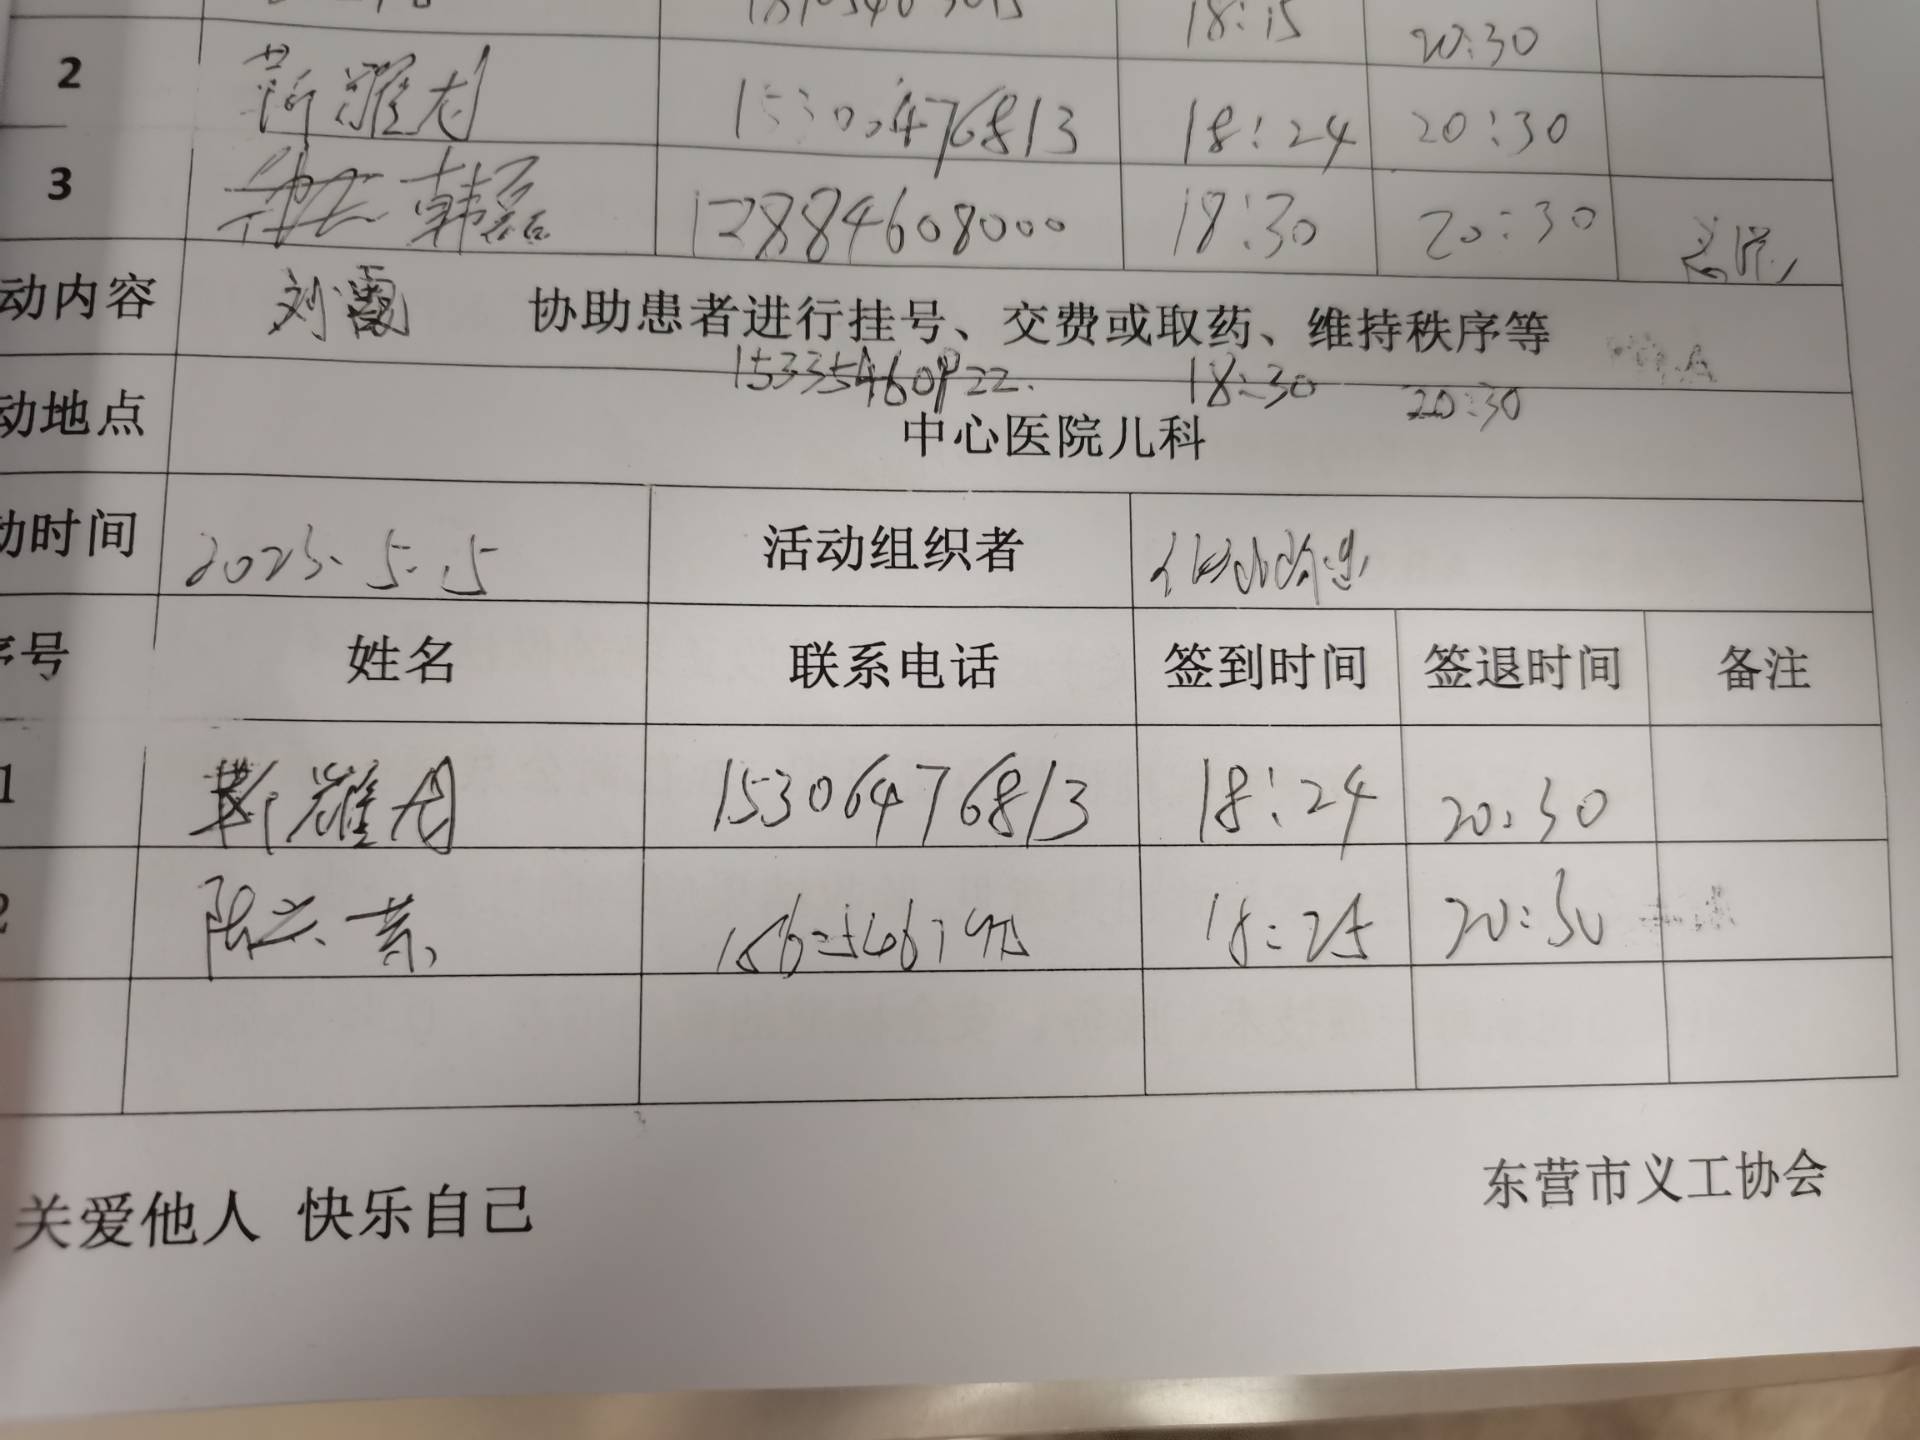 18:15 20:30
2 靳耀龙 15306476813 18:24 20:30
3 韩磊 12884608000 18:30 20:30
动内容 刘霞 协助患者进行挂号、交费或取药、维持秩序等
15335460922. 18:30 20:30
动地点 中心医院儿科
动时间 2023.5.15 活动组织者
序号 姓名 联系电话 签到时间 签退时间 备注
1 靳耀龙 15306476813 18:24 20:30
2 18:25 20:30
关爱他人 快乐自己
东营市义工协会